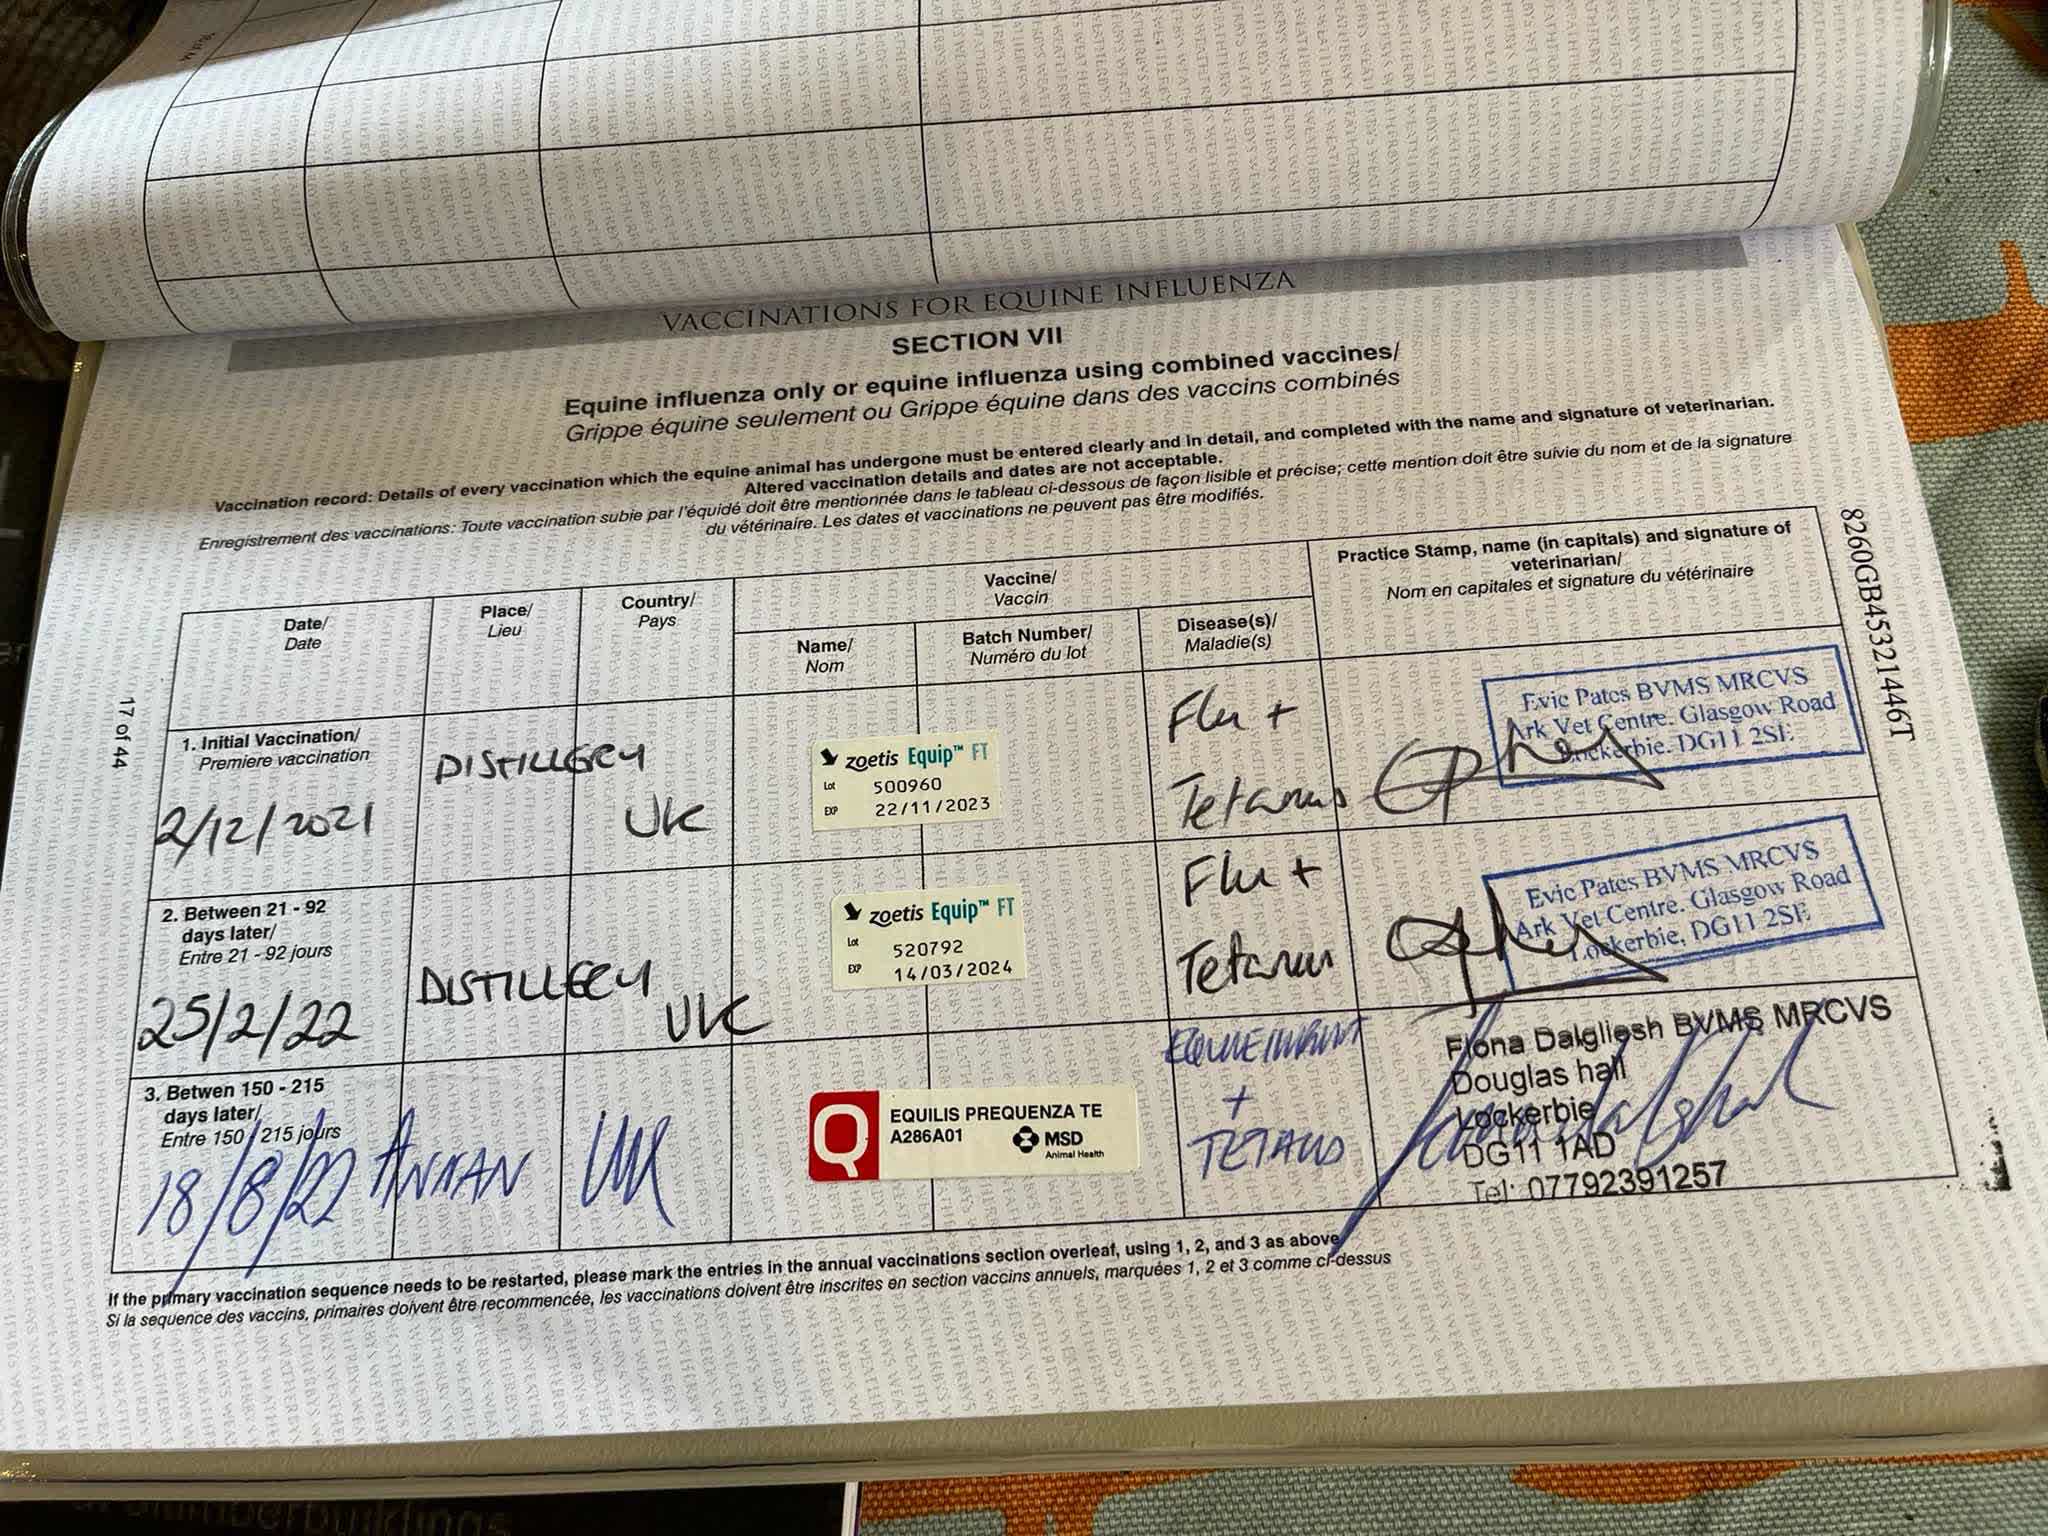 VACCINATIONS FOR EQUINE INFLUENZA
SECTION VII
Equine influenza only or equine influenza using combined vaccines/
Grippe équine seulement ou Grippe équine dans des vaccins combinés
Vaccination record: Details of every vaccination which the equine animal has undergone must be entered clearly and in detail, and completed with the name and signature of veterinarian.
Altered vaccination details and dates are not acceptable.
Enregistrement des vaccinations: Toute vaccination subie par l'équidé doit être mentionnée dans le tableau ci-dessous de façon lisible et précise; cette mention doit être suivie du nom et de la signature
du vétérinaire. Les dates et vaccinations ne peuvent pas être modifiés.
8260GB45321446T
17 of 44
Date/
Date
Place/
Lieu
Country/
Pays
Vaccine/
Vaccin
Name/
Nom
Batch Number/
Numéro du lot
Disease(s)/
Maladie(s)
Practice Stamp, name (in capitals) and signature of
veterinarian/
Nom en capitales et signature du vétérinaire
1. Initial Vaccination/
Premiere vaccination
2/12/2021
DISTILLERY
UK
zoetis Equip™ FT
Lot 500960
EXP 22/11/2023
Flu +
Tetanus
Evie Pates BVMS MRCVS
Ark Vet Centre. Glasgow Road
Lockerbie. DG11 2SE
2. Between 21 - 92
days later/
Entre 21 - 92 jours
25/2/22
DISTILLERY
UK
zoetis Equip™ FT
Lot 520792
EXP 14/03/2024
Flu +
Tetanus
Evie Pates BVMS MRCVS
Ark Vet Centre. Glasgow Road
Lockerbie, DG11 2SE
3. Betwen 150 - 215
days later/
Entre 150 / 215 jours
18/8/22
ANNAN
UK
Q
EQUILIS PREQUENZA TE
A286A01
MSD
Animal Health
EQUINE
+
Fiona Dalgliesh BVMS MRCVS
Douglas hall
Lockerbie
DG11 1AD
Tel: 07792391257
If the primary vaccination sequence needs to be restarted, please mark the entries in the annual vaccinations section overleaf, using 1, 2, and 3 as above
Si la sequence des vaccins, primaires doivent être recommencée, les vaccinations doivent être inscrites en section vaccins annuels, marquées 1, 2 et 3 comme ci-dessus